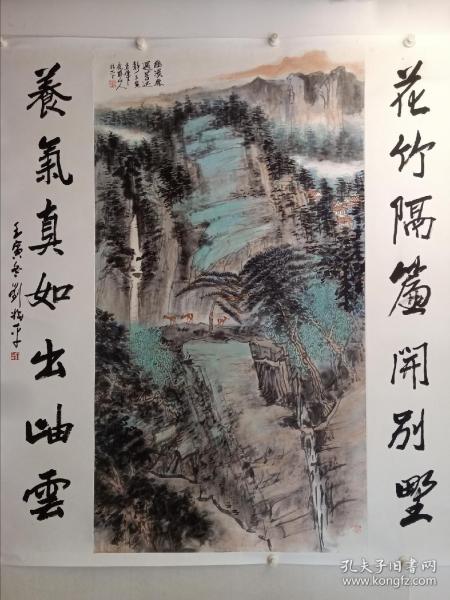 花竹隔簾開別墅
養氣真如出岫雲
壬寅冬劉楊平
孔夫子旧书网
www.kongfz.com